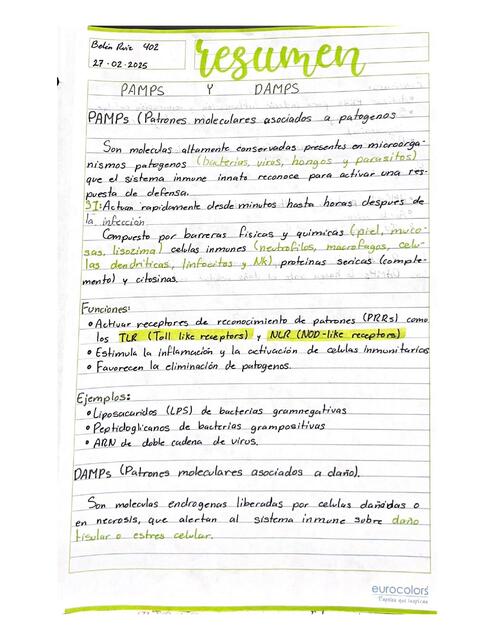 Belén Ruiz 402
27-02-2025
resumen
PAMPS Y DAMPS
PAMPs (Patrones moleculares asociados a patogenos
Son moleculas altamente conservadas presentes en microorga-
nismos patogenos (bacterias, virus, hongos y parasitos)
que el sistema inmune innato reconoce para activar una res-
puesta de defensa.
SI: Actuan rapidamente desde minutos hasta horas despues de
la infección
Compuesto por barreras fisicas y quimicas (piel, muco-
sas, lisozima) celulas inmunes (neutrofilos, macrofagos, celu-
las dendriticas, linfocitos y NK) proteinas sericas (comple-
mento) y citosinas.
Funciones:
• Activar receptores de reconocimiento de patrones (PRRs) como
los TLR (Toll like receptors) y NLR (NOD-like receptors)
• Estimula la inflamación y la activación de celulas inmunitarias
• Favorecen la eliminación de patogenos.
Ejemplos:
• Liposacaridos (LPS) de bacterias gramnegativas
• Peptidoglicanos de bacterias grampositivas
• ARN de doble cadena de virus.
DAMPs (Patrones moleculares asociados a daño).
Son moleculas endrogenas liberadas por celulas dañadas o
en necrosis, que alertan al sistema inmune sobre daño
tisular o estres celular.
eurocolors